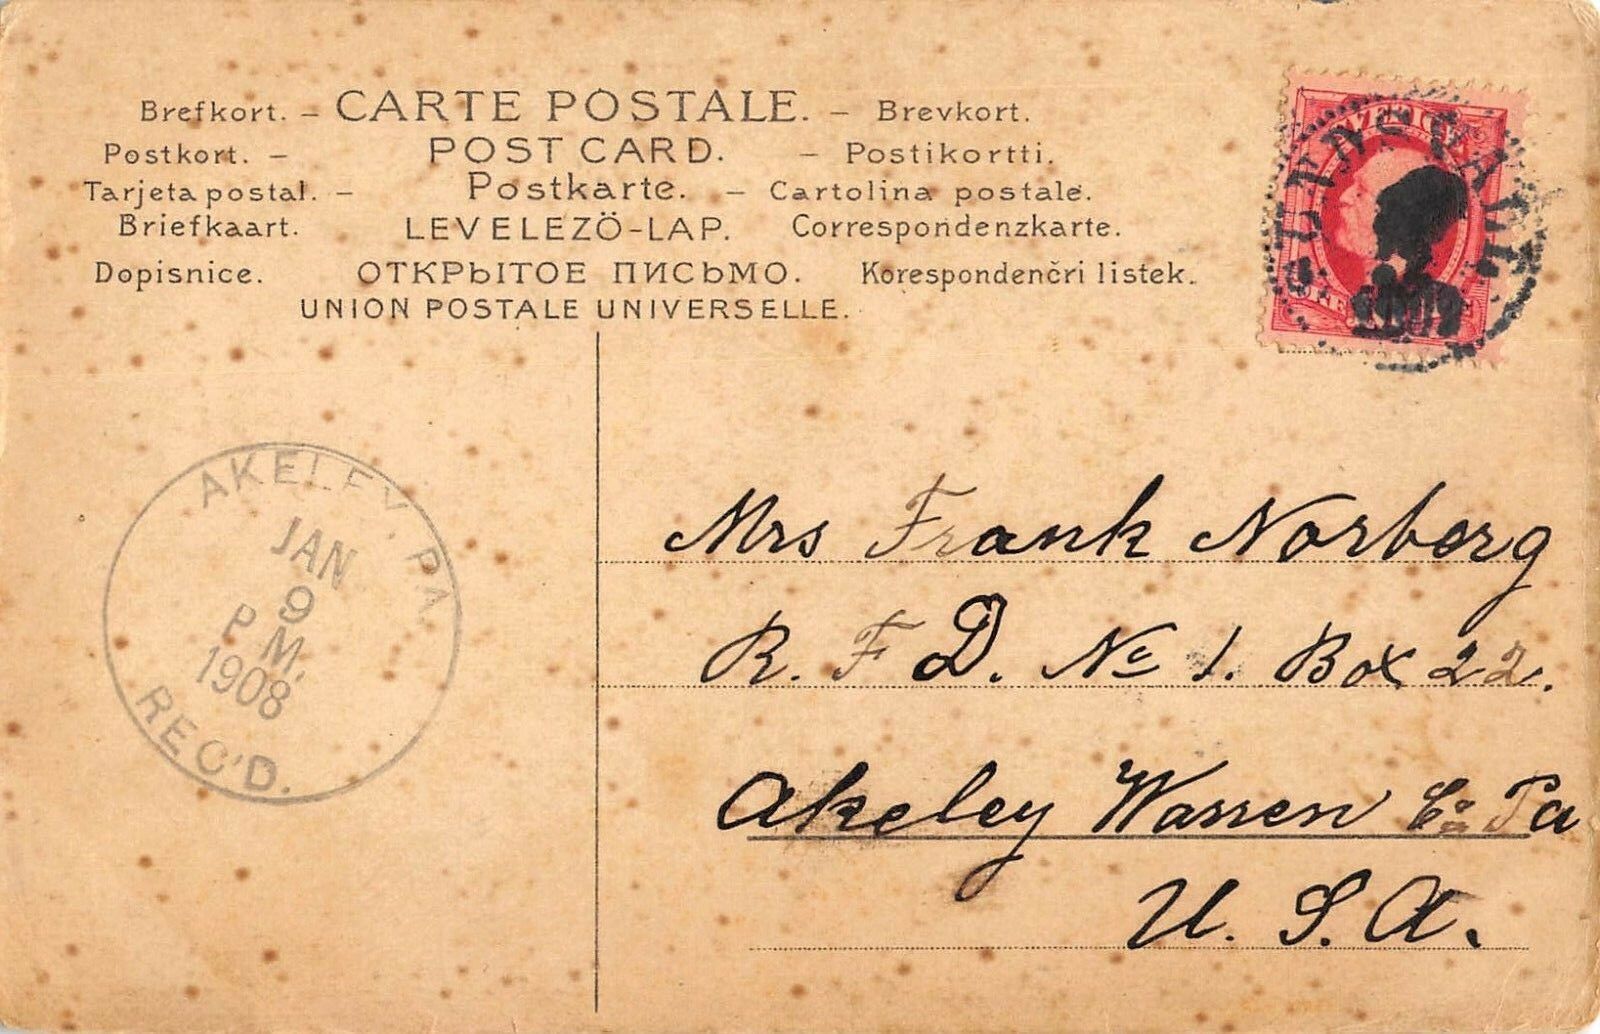 Brefkort. – CARTE POSTALE. – Brevkort.
Postkort. – POST CARD. – Postikortti.
Tarjeta postal. – Postkarte. – Cartolina postale.
Briefkaart. LEVELEZÖ-LAP. Correspondenzkarte.
Dopisnice. ОТКРЫТОЕ ПИСЬМО. Korespondenčri listek.
UNION POSTALE UNIVERSELLE.
AKELEY, PA.
JAN
9
P M.
1908
REC'D.
Mrs Frank Norberg
R. F D. No 1. Box 22.
Akeley Warren Co Pa
U. S. A.